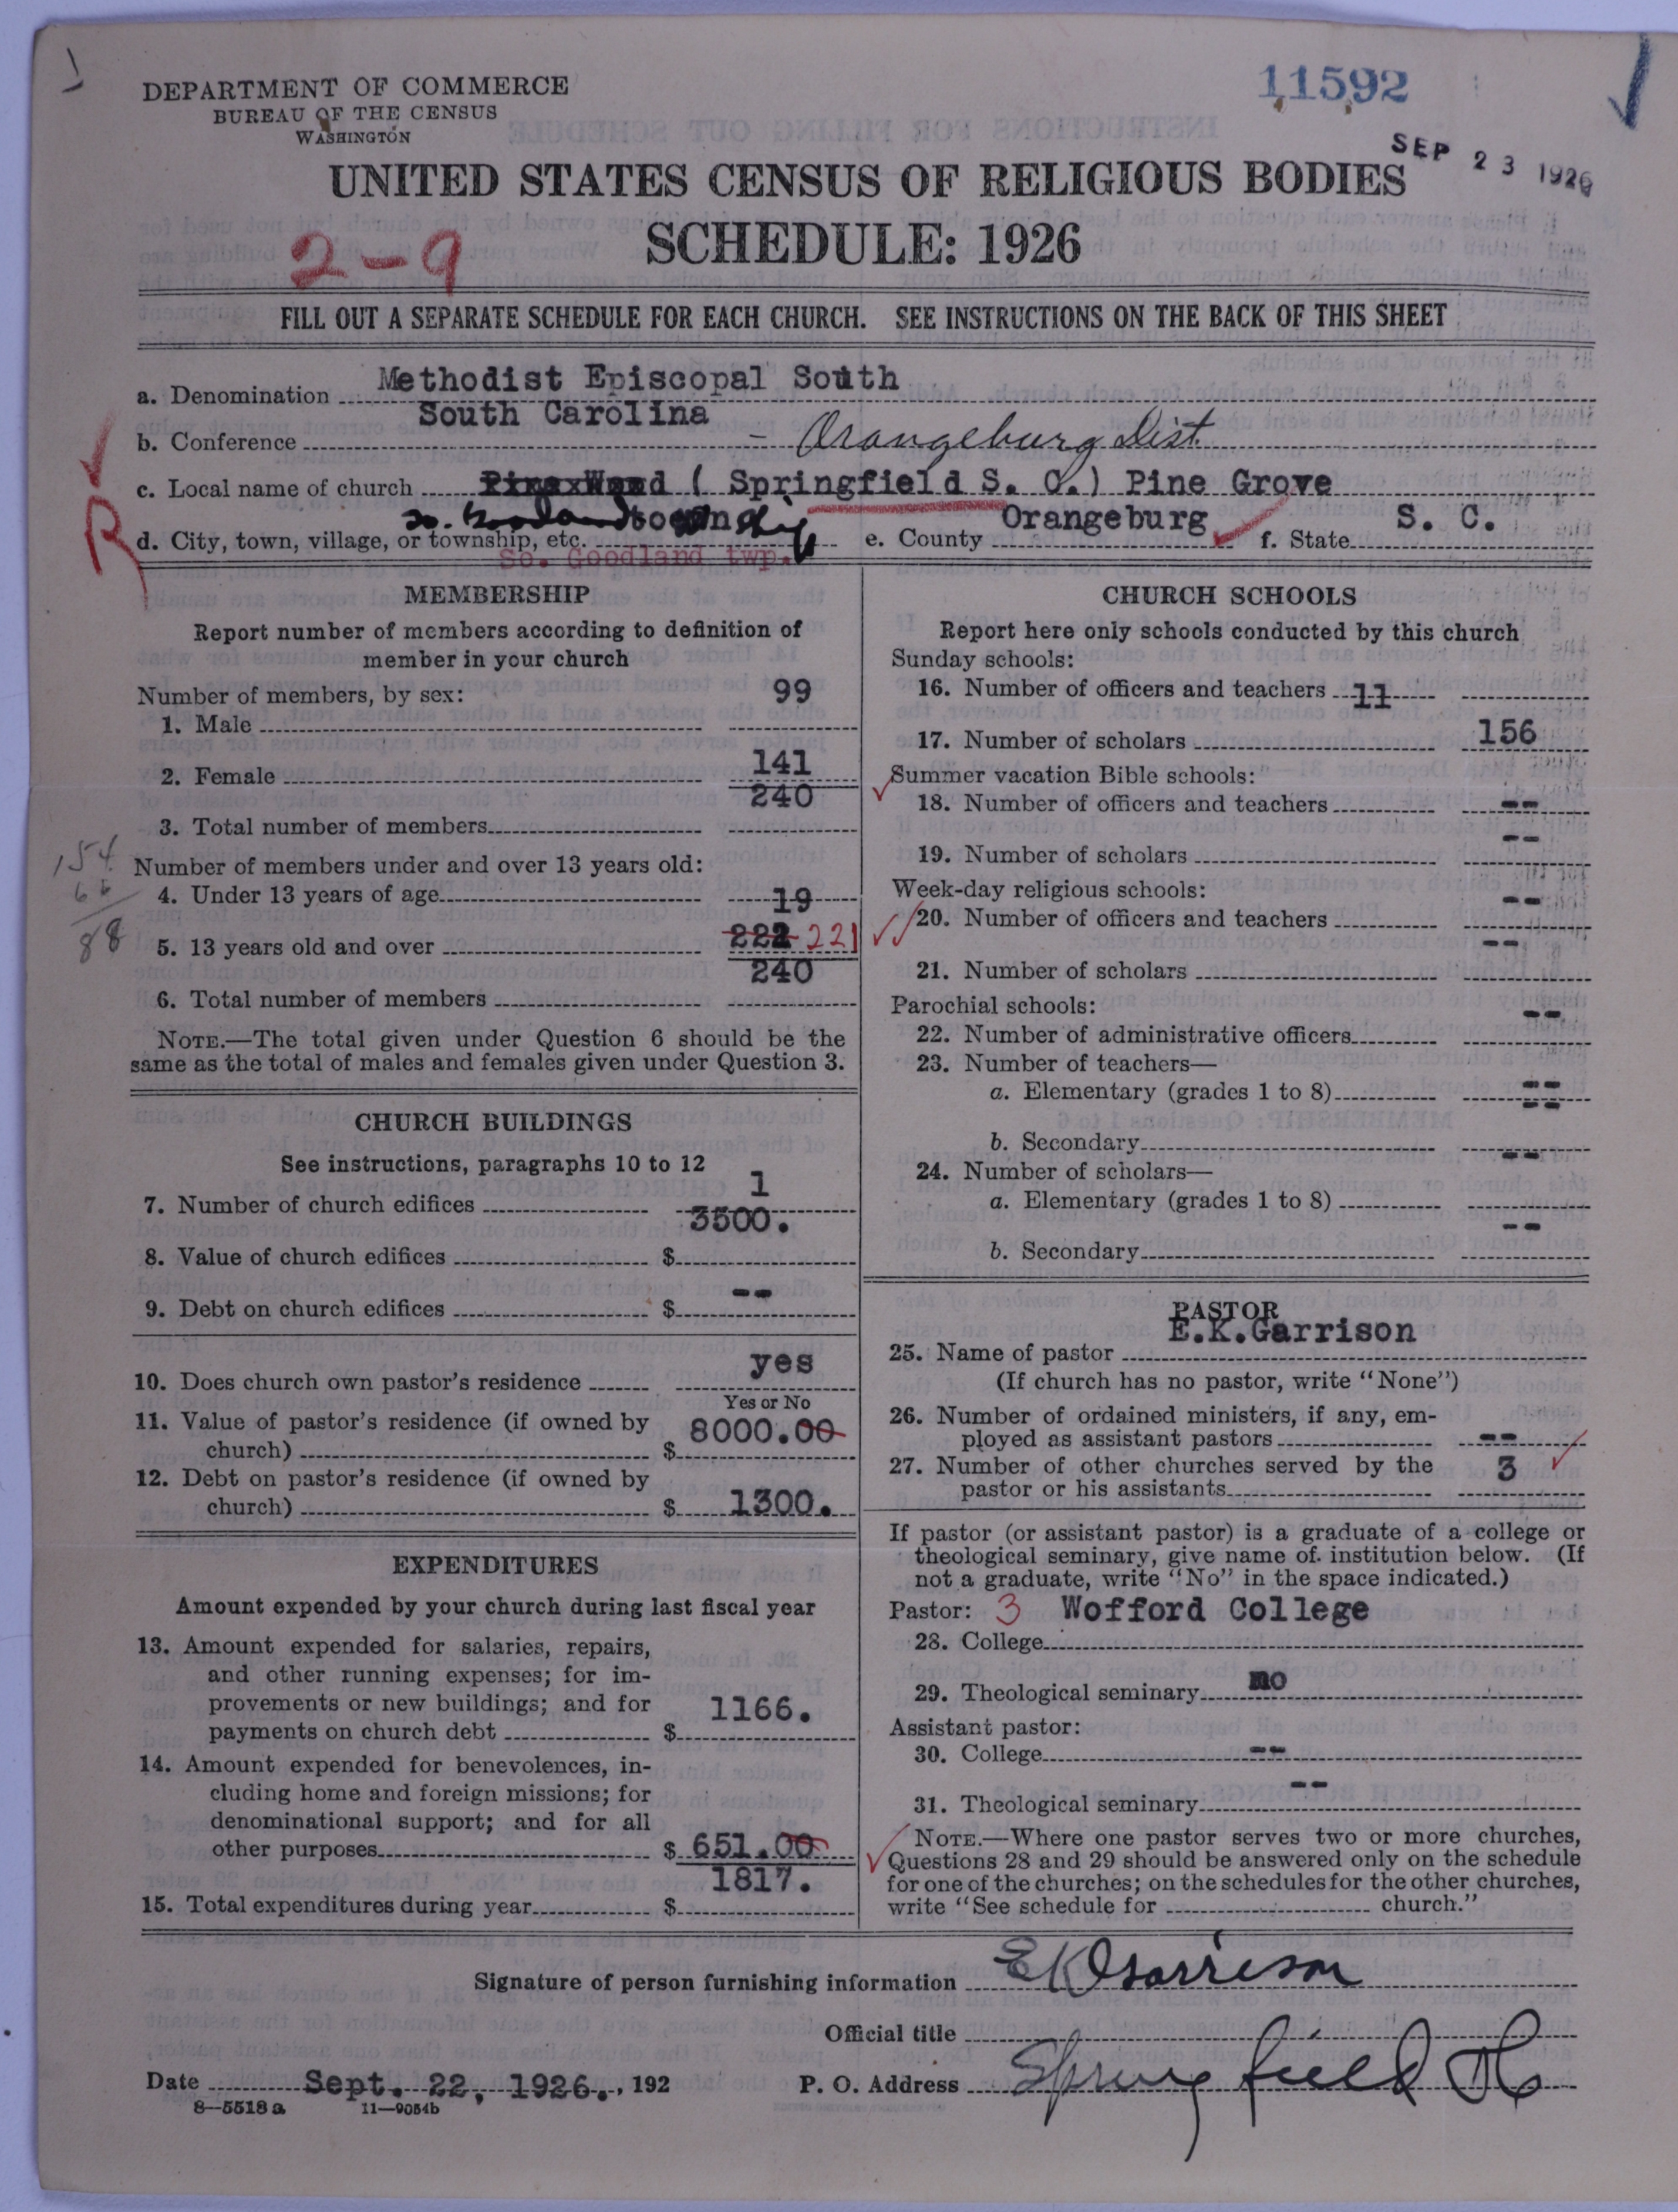 DEPARTMENT OF COMMERCE
BUREAU OF THE CENSUS
WASHINGTON
11592
SEP 23 1926
UNITED STATES CENSUS OF RELIGIOUS BODIES
SCHEDULE: 1926
2-9
FILL OUT A SEPARATE SCHEDULE FOR EACH CHURCH. SEE INSTRUCTIONS ON THE BACK OF THIS SHEET
a. Denomination Methodist Episcopal South
b. Conference South Carolina - Orangeburg Dist.
c. Local name of church ( Springfield S. C.) Pine Grove
d. City, town, village, or township, etc. So. Goodland township e. County Orangeburg f. State S. C.
So. Goodland twp.
R
MEMBERSHIP
Report number of members according to definition of
member in your church
Number of members, by sex:
1. Male 99
2. Female 141
3. Total number of members 240
Number of members under and over 13 years old:
4. Under 13 years of age 19
5. 13 years old and over 222 221
6. Total number of members 240
154
66
88
NOTE.—The total given under Question 6 should be the
same as the total of males and females given under Question 3.
CHURCH BUILDINGS
See instructions, paragraphs 10 to 12
7. Number of church edifices 1
8. Value of church edifices $ 3500.
9. Debt on church edifices $ --
10. Does church own pastor's residence yes
Yes or No
11. Value of pastor's residence (if owned by
church) $ 8000.00
12. Debt on pastor's residence (if owned by
church) $ 1300.
EXPENDITURES
Amount expended by your church during last fiscal year
13. Amount expended for salaries, repairs,
and other running expenses; for im-
provements or new buildings; and for
payments on church debt $ 1166.
14. Amount expended for benevolences, in-
cluding home and foreign missions; for
denominational support; and for all
other purposes $ 651.00
15. Total expenditures during year $ 1817.
CHURCH SCHOOLS
Report here only schools conducted by this church
Sunday schools:
16. Number of officers and teachers 11
17. Number of scholars 156
Summer vacation Bible schools:
18. Number of officers and teachers --
19. Number of scholars --
Week-day religious schools:
20. Number of officers and teachers --
21. Number of scholars --
Parochial schools:
22. Number of administrative officers --
23. Number of teachers—
a. Elementary (grades 1 to 8) --
b. Secondary --
24. Number of scholars—
a. Elementary (grades 1 to 8) --
b. Secondary --
PASTOR
25. Name of pastor E.K.Garrison
(If church has no pastor, write "None")
26. Number of ordained ministers, if any, em-
ployed as assistant pastors --
27. Number of other churches served by the
pastor or his assistants 3
If pastor (or assistant pastor) is a graduate of a college or
theological seminary, give name of institution below. (If
not a graduate, write "No" in the space indicated.)
Pastor: 3
28. College Wofford College
29. Theological seminary no
Assistant pastor:
30. College --
31. Theological seminary --
NOTE.—Where one pastor serves two or more churches,
Questions 28 and 29 should be answered only on the schedule
for one of the churches; on the schedules for the other churches,
write "See schedule for church."
Signature of person furnishing information E K Garrison
Official title
Date Sept. 22, 1926., 192 P. O. Address Springfield SC
8—5518 a 11—9054b